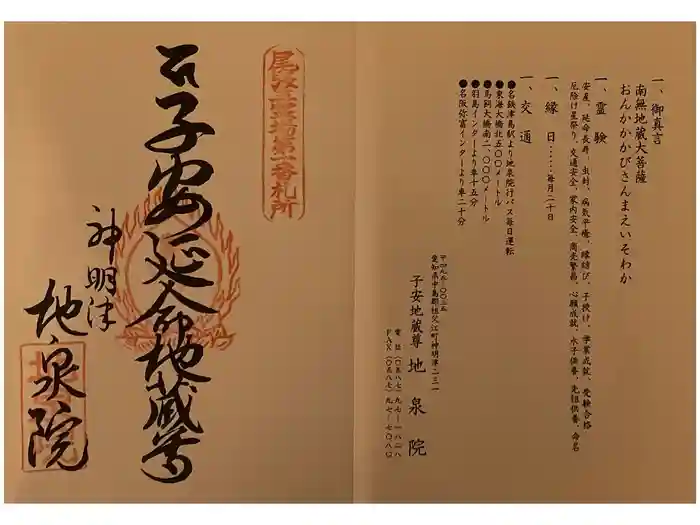 一、御真言
南無地蔵大菩薩
おんかかかびさんまえいそわか
一、霊験
安産、延命長寿、虫封、病気平癒、縁結び、子授け、学業成就、受験合格
厄除け星祭り、交通安全、家内安全、商売繁昌、心願成就、水子供養、先祖供養、命名
一、縁日……毎月二十日
一、交通
●名鉄津島駅より地泉院行バス毎日運転
●東海大橋北五〇〇メートル
●馬飼大橋南二、〇〇〇メートル
●羽島インターより車十五分
●名阪弥富インターより車二十分
〒四九五―〇〇三五
愛知県中島郡祖父江町神明津二三一
子安地蔵尊 地泉院
電話(〇五八七)九七―一八二八
FAX(〇五八七)九七―七〇八〇
子安延命地蔵尊
神明津
地泉院